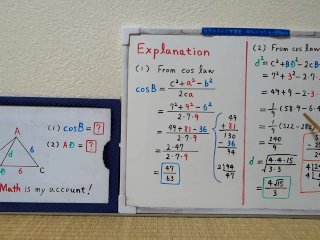 A
d
6
C
(1) cosB = ?
(2) AD = ?
Math is my account!
Explanation
(1) From cos law
cosB = c²+a²-b² / 2ca
= 7²+9²-6² / 2·7·9
= 49+81-36 / 2·7·9
= 2·47 / 2·7·9
= 47 / 63
49
+ 81
130
- 36
94
2 94
47
(2) From cos
d² = c²+BD²-2cB
= 7²+3²-2·7
= 49+9-2·3
= 1/9 (58·9-6·4
= 1/9 (522-282
= 240 / 9
d = √4·4·15 / √3·3
= 4√15 / 3